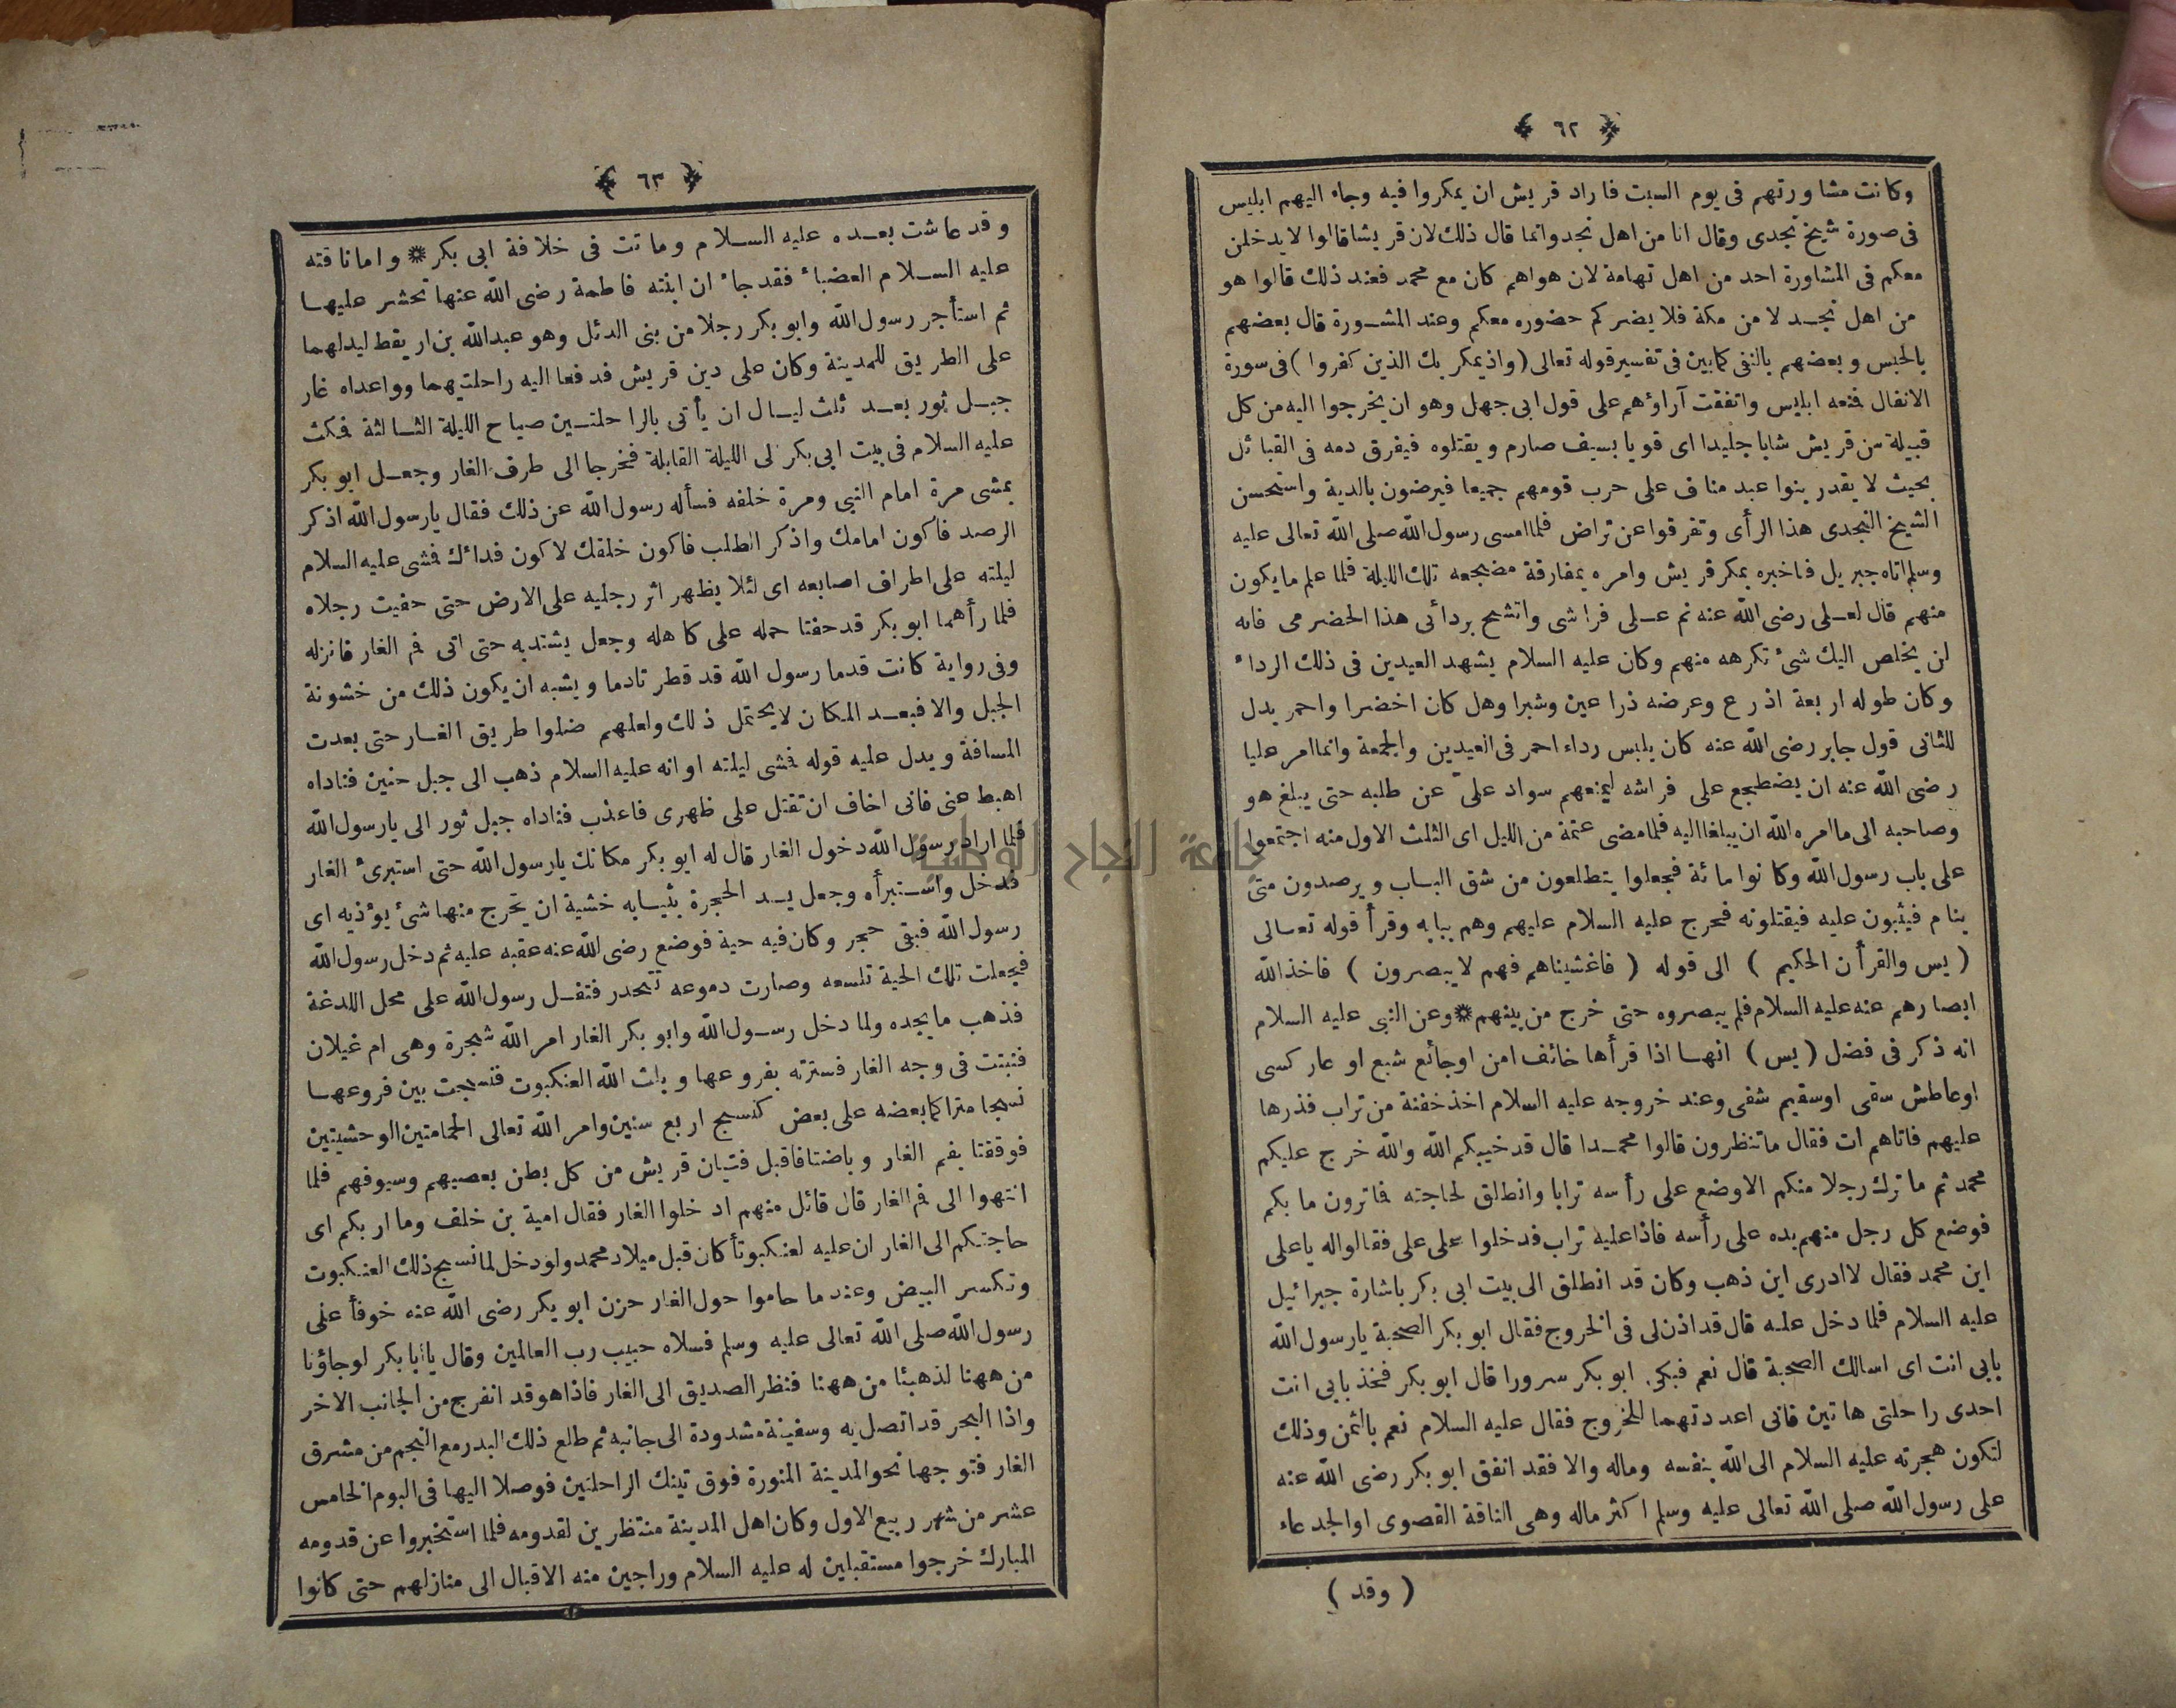 ﴿ ٦٢ ﴾
وكانت مشاورتهم فى يوم السبت فاراد قريش ان يمكروا فيه وجاء اليهم ابليس
فى صورة شيخ نجدى وقال انا من اهل نجد وانما قال ذلك لان قريشا قالوا لا يدخلن
معكم فى المشاورة احد من اهل تهامة لان هواهم كان مع محمد فعند ذلك قالوا هو
من اهل نجد لا من مكة فلا يضركم حضوره معكم وعند المشورة قال بعضهم
بالحبس وبعضهم بالنفى كما بين فى تفسير قوله تعالى (واذ يمكر بك الذين كفروا) فى سورة
الانفال فمنعه ابليس واتفقت آراؤهم على قول ابى جهل وهو ان يخرجوا اليه من كل
قبيلة من قريش شابا جليدا اى قويا بسيف صارم ويقتلوه فيفرق دمه فى القبائل
بحيث لا يقدر بنوا عبد مناف على حرب قومهم جميعا فيرضون بالدية واستحسن
الشيخ النجدى هذا الرأى وتفرقوا عن تراض فلما امسى رسول الله صلى الله تعالى عليه
وسلم اتاه جبريل فاخبره بمكر قريش وامره بمفارقة مضجعه تلك الليلة فلما علم ما يكون
منهم قال لعلى رضى الله عنه نم على فراشى واتشح بردائى هذا الحضرمى فانه
لن يخلص اليك شئ تكرهه منهم وكان عليه السلام يشهد العيدين فى ذلك الرداء
وكان طوله اربعة اذرع وعرضه ذراعين وشبرا وهل كان اخضرا واحمر يدل
للثانى قول جابر رضى الله عنه كان يلبس رداء احمر فى العيدين والجمعة وانما امر عليا
رضى الله عنه ان يضطجع على فراشه ليمنعهم سواد علىّ عن طلبه حتى يبلغ هو
وصاحبه الى ما امره الله ان يبلغا اليه فلما مضى عتمة من الليل اى الثلث الاول منه اجتمعوا
على باب رسول الله وكانوا مائة فجعلوا يتطلعون من شق الباب ويرصدون متى
ينام فيثبون عليه فيقتلونه فخرج عليه السلام عليهم وهم ببابه وقرأ قوله تعالى
(يس والقرأن الحكيم) الى قوله (فاغشيناهم فهم لا يبصرون) فاخذ الله
ابصارهم عنه عليه السلام فلم يبصروه حتى خرج من بينهم * وعن النبى عليه السلام
انه ذكر فى فضل (يس) انها اذا قرأها خائف امن اوجائع شبع او عار كسى
اوعاطش سقى اوسقيم شفى وعند خروجه عليه السلام اخذ حفنة من تراب فذرها
عليهم فاتاهم ات فقال ما تنظرون قالوا محمدا قال قد خيبكم الله والله خرج عليكم
محمد ثم ما ترك رجلا منكم الا وضع على رأسه ترابا وانطلق لحاجته فما ترون ما بكم
فوضع كل رجل منهم يده على رأسه فاذا عليه تراب فدخلوا على على فقالوا له يا على
اين محمد فقال لا ادرى اين ذهب وكان قد انطلق الى بيت ابى بكر باشارة جبرائيل
عليه السلام فلما دخل عليه قال قد اذن لى فى الخروج فقال ابو بكر الصحبة يا رسول الله
بابى انت اى اسالك الصحبة قال نعم فبكى ابو بكر سرورا قال ابو بكر فخذ بابى انت
احدى راحلتى هاتين فانى اعددتهما للخروج فقال عليه السلام نعم بالثمن وذلك
لتكون هجرته عليه السلام الى الله بنفسه وماله والا فقد انفق ابو بكر رضى الله عنه
على رسول الله صلى الله تعالى عليه وسلم اكثر ماله وهى الناقة القصوى اوالجدعاء
(وقد)
﴿ ٦٣ ﴾
وقد عاشت بعده عليه السلام وماتت فى خلافة ابى بكر * واما ناقته
عليه السلام العضباء فقد جاء ان ابنته فاطمة رضى الله عنها تحشر عليها
ثم استأجر رسول الله وابو بكر رجلا من بنى الدئل وهو عبد الله بن اريقط ليدلهما
على الطريق للمدينة وكان على دين قريش فدفعا اليه راحلتيهما وواعداه غار
جبل ثور بعد ثلث ليال ان يأتى بالراحلتين صباح الليلة الثالثة فمكث
عليه السلام فى بيت ابى بكر الى الليلة القابلة فخرجا الى طرف الغار وجعل ابو بكر
يمشى مرة امام النبى ومرة خلفه فسأله رسول الله عن ذلك فقال يا رسول الله اذكر
الرصد فاكون امامك واذكر الطلب فاكون خلفك لاكون فداءك فمشى عليه السلام
ليلته على اطراف اصابعه اى لئلا يظهر اثر رجليه على الارض حتى حفيت رجلاه
فلما رأهما ابو بكر قد حفتا حمله على كاهله وجعل يشتد به حتى اتى فم الغار فانزله
وفى رواية كانت قدما رسول الله قد قطرتا دما ويشبه ان يكون ذلك من خشونة
الجبل والا فبعد المكان لا يحتمل ذلك ولعلهم ضلوا طريق الغار حتى بعدت
المسافة ويدل عليه قوله فمشى ليلته او انه عليه السلام ذهب الى جبل حنين فناداه
اهبط عنى فانى اخاف ان تقتل على ظهرى فاعذب فناداه جبل ثور الى يا رسول الله
فلما اراد رسول الله دخول الغار قال له ابو بكر مكانك يا رسول الله حتى استبرئ الغار
فدخل واستبرأه وجعل يسد الحجرة بثيابه خشية ان يخرج منها شئ يؤذيه اى
رسول الله فبقى حجر وكان فيه حية فوضع رضى الله عنه عقبه عليه ثم دخل رسول الله
فجعلت تلك الحية تلسعه وصارت دموعه تتحدر فتفل رسول الله على محل اللدغة
فذهب ما يجده ولما دخل رسول الله وابو بكر الغار امر الله شجرة وهى ام غيلان
فنبتت فى وجه الغار فسترته بفروعها وبعث الله العنكبوت فنسجت بين فروعها
نسجا متراكما بعضه على بعض كنسج اربع سنين وامر الله تعالى الحمامتين الوحشيتين
فوقفتا بفم الغار وباضتا فاقبل فتيان قريش من كل بطن بعصيهم وسيوفهم فلما
انتهوا الى فم الغار قال قائل منهم ادخلوا الغار فقال امية بن خلف وما اربكم اى
حاجتكم الى الغار ان عليه لعنكبوتا كان قبل ميلاد محمد ولو دخل لما نسج ذلك العنكبوت
وتكسر البيض وعند ما حاموا حول الغار حزن ابو بكر رضى الله عنه خوفا على
رسول الله صلى الله تعالى عليه وسلم فسلاه حبيب رب العالمين وقال يا ابا بكر لوجاؤنا
من ههنا لذهبنا من ههنا فنظر الصديق الى الغار فاذا هو قد انفرج من الجانب الاخر
واذا البحر قد اتصل به وسفينة مشدودة الى جانبه ثم طلع ذلك البدر مع النجم من مشرق
الغار فتوجها نحو المدينة المنورة فوق تينك الراحلتين فوصلا اليها فى اليوم الخامس
عشر من شهر ربيع الاول وكان اهل المدينة منتظرين لقدومه فلما استخبروا عن قدومه
المبارك خرجوا مستقبلين له عليه السلام وراجين منه الاقبال الى منازلهم حتى كانوا
جامعة النجاح الوطنية